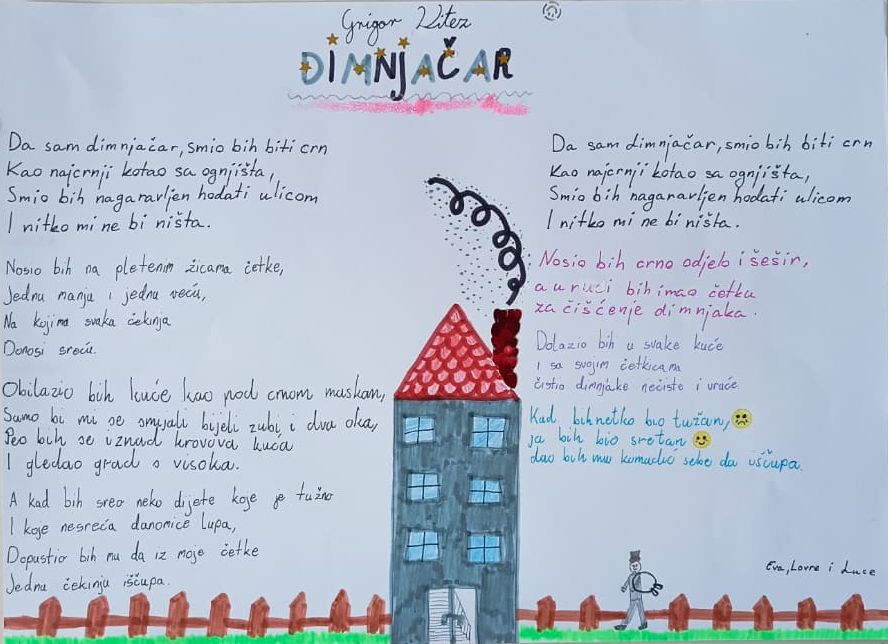 Grigor Vitez
DIMNJAČAR
Da sam dimnjačar, smio bih biti crn
Kao najcrnji kotao sa ognjišta,
Smio bih nagaravljen hodati ulicom
I nitko mi ne bi ništa.
Nosio bih na pletenim žicama četke,
Jednu manju i jednu veću,
Na kojima svaka čekinja
Donosi sreću.
Obilazio bih kuće kao pod crnom maskom,
Samo bi mi se smijali bijeli zubi i dva oka,
Peo bih se iznad krovova kuća
I gledao grad s visoka.
A kad bih sreo neko dijete koje je tužno
I koje nesreća danomice lupa,
Dopustio bih mu da iz moje četke
Jednu čekinju iščupa.
Da sam dimnjačar, smio bih biti crn
Kao najcrnji kotao sa ognjišta,
Smio bih nagaravljen hodati ulicom
I nitko mi ne bi ništa.
Nosio bih crno odjelo i šešir,
a u ruci bih imao četku
za čišćenje dimnjaka.
Dolazio bih u svake kuće
i sa svojim četkicama
čistio dimnjake nečiste i vruće.
Kad bih netko bio tužan,
ja bih bio sretan
dao bih mu komadić sebe da iščupa.
Eva, Lovre i Luce